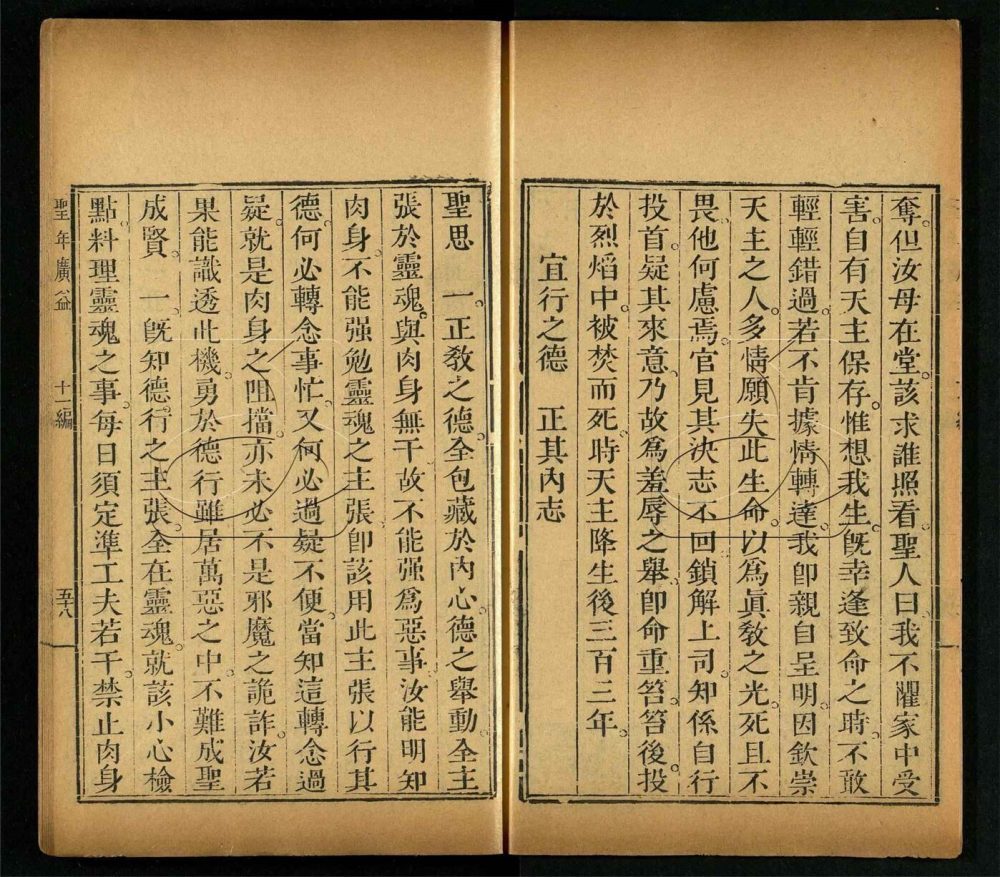 奪。但汝母在堂。該求誰照看。聖人曰。我不懼家中受
害。自有天主保存。惟想我生。旣幸逢致命之時。不敢
輕輕錯過。若不肯據情轉達。我卽親自呈明。因欽崇
天主之人。多情願失此生命。以爲眞敎之光。死且不
畏。他何慮焉。官見其決志不回。鎖解上司。知係自行
投首。疑其來意。乃故爲羞辱之舉。卽命重笞。笞後。投
於烈熖中。被焚而死。時天主降生後三百三年。
宜行之德 正其內志
聖思 一。正敎之德。全包藏於內心。德之舉動。全主
張於靈魂。與肉身無干。故不能强爲惡事。汝能明知
肉身。不能强勉靈魂之主張。卽該用此主張。以行其
德。何必轉念事忙。又何必過疑不便。當知這轉念過
疑。就是肉身之阻擋。亦未必不是邪魔之詭詐。汝若
果能識透此機。勇於德行。雖居萬惡之中。不難成聖
成賢。 一。旣知德行之主張。全在靈魂。就該小心檢
點。料理靈魂之事。每日須定準工夫若干。禁止肉身
聖年廣益 十一編 五十八